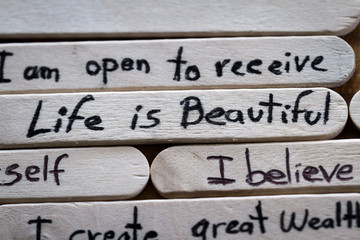 I am open to receive
Life is Beautiful
self I believe
I create great Wealth